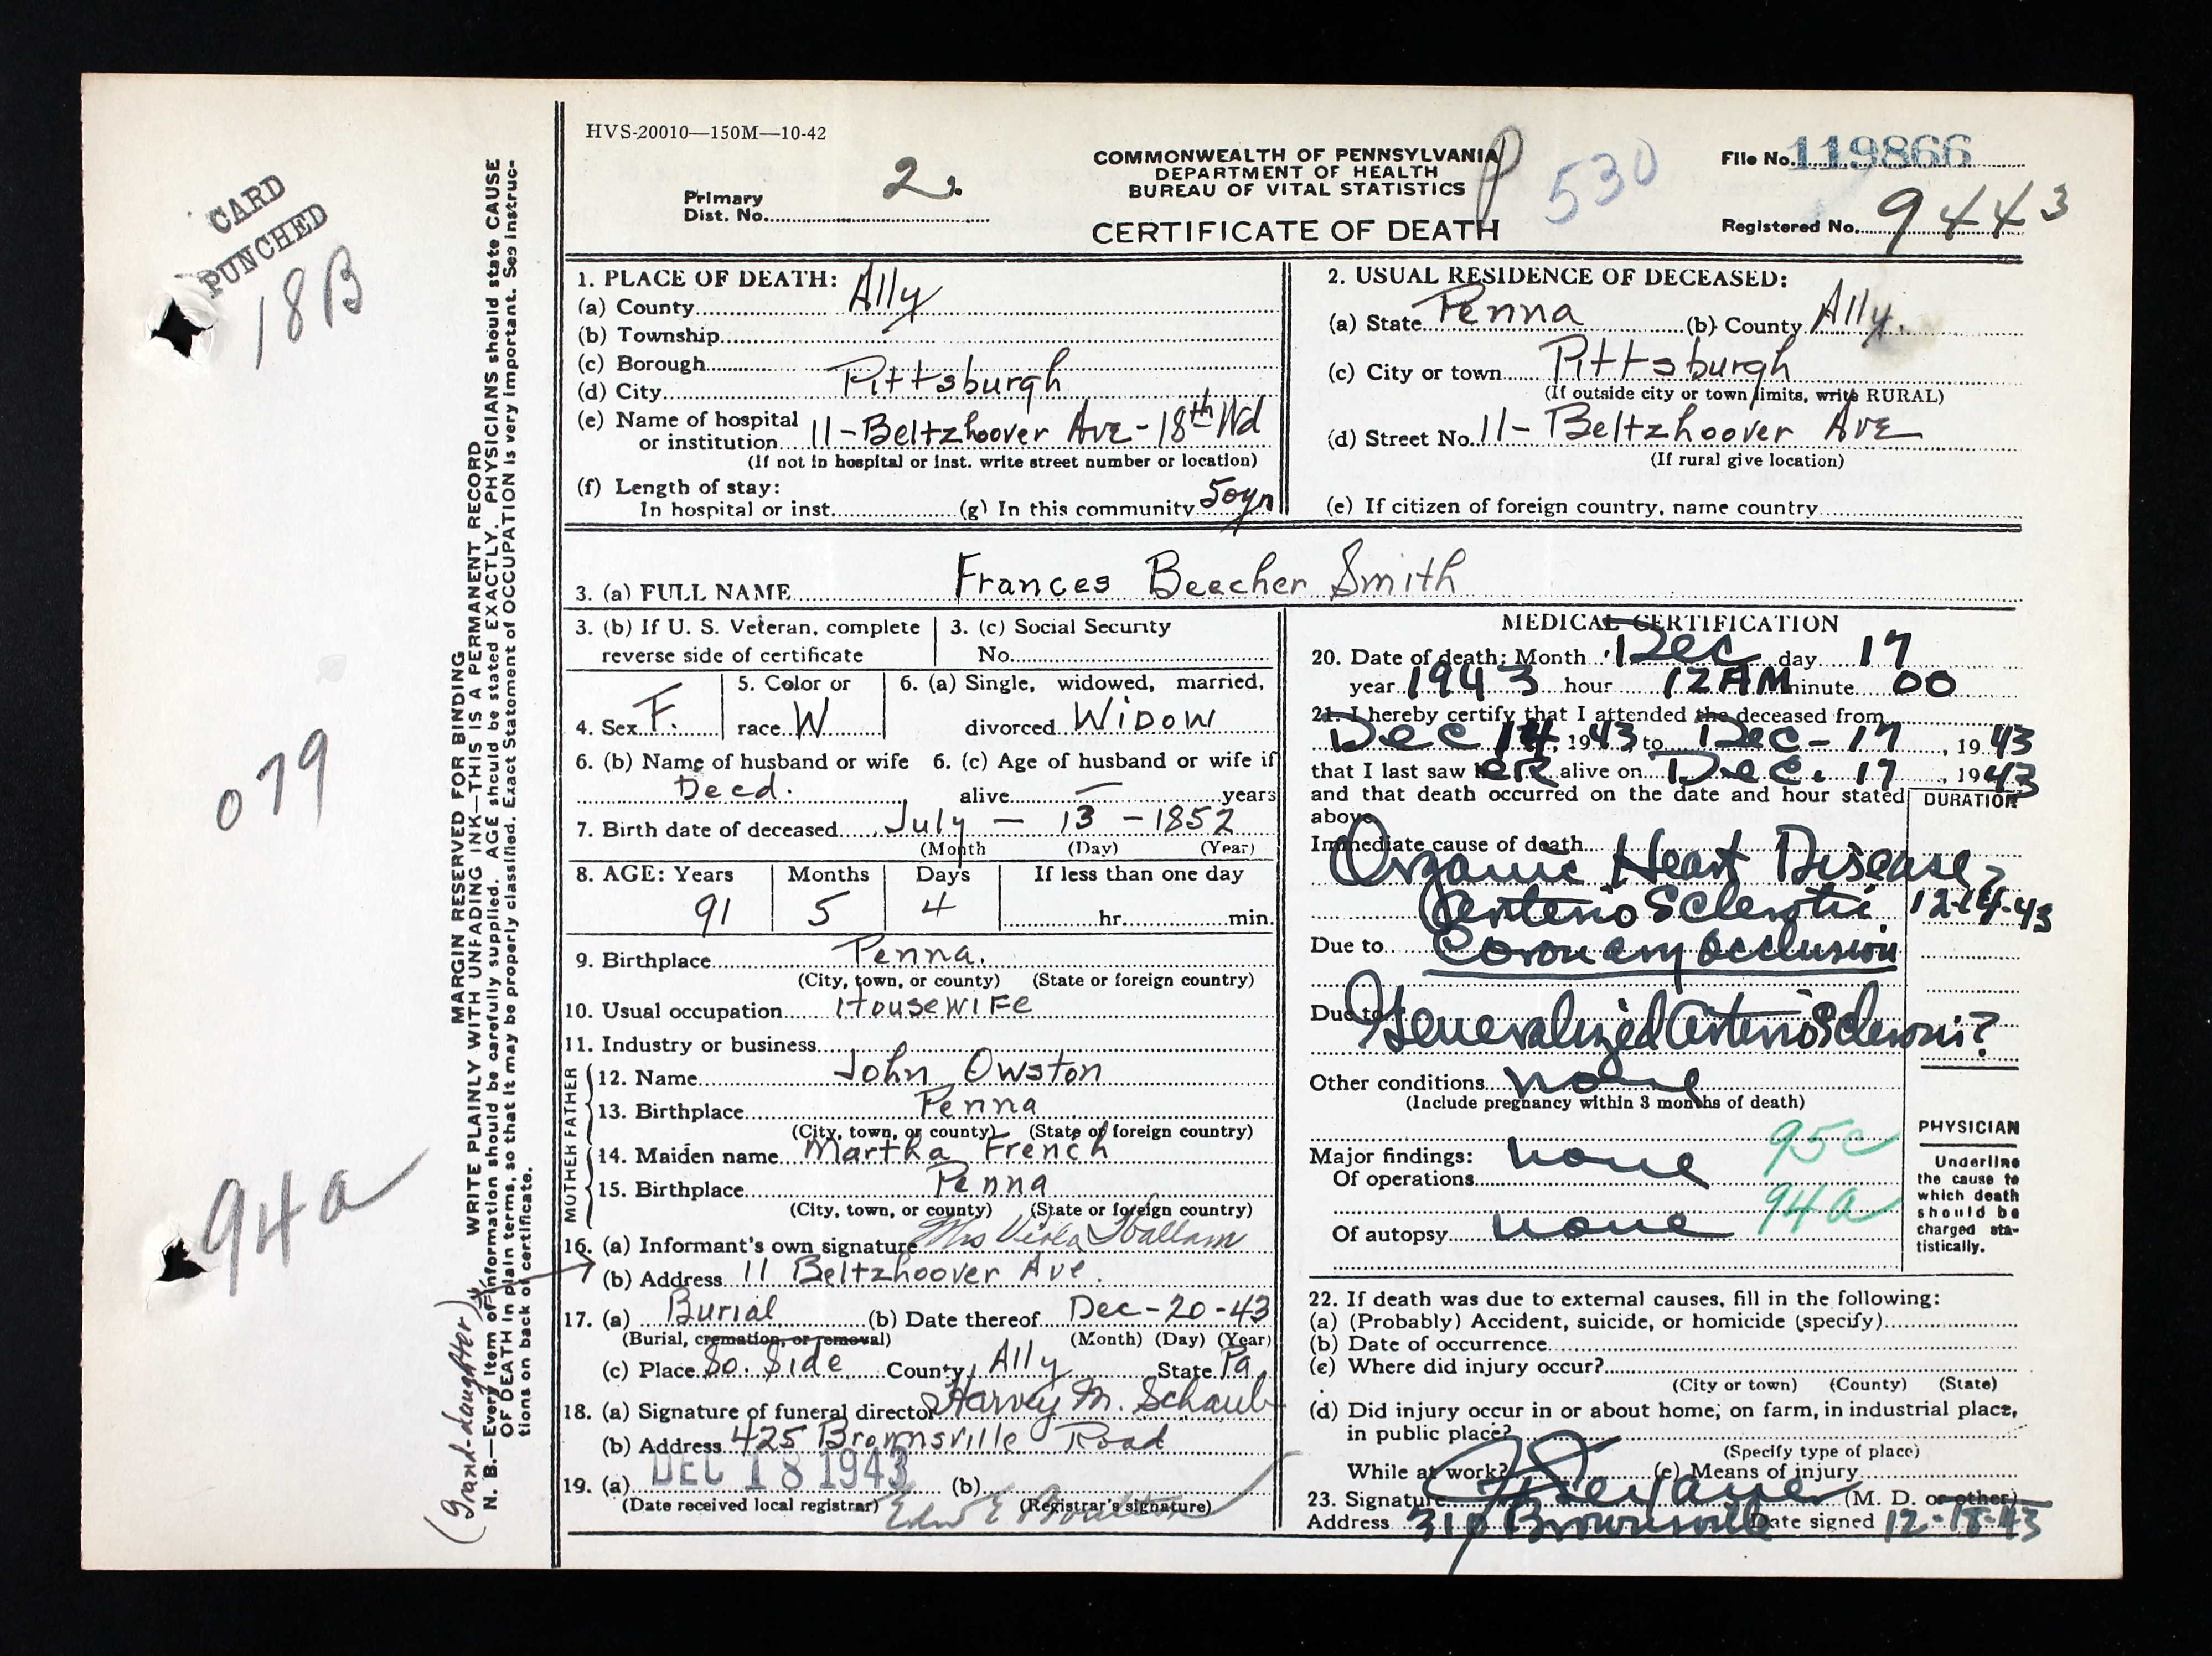 HVS-20010—150M—10-42
COMMONWEALTH OF PENNSYLVANIA
DEPARTMENT OF HEALTH
BUREAU OF VITAL STATISTICS
CERTIFICATE OF DEATH
P 530
Primary
Dist. No. 2.
File No. 119866
Registered No. 9443
CARD
PUNCHED
18B
079
94a
(Grand-daughter)
MARGIN RESERVED FOR BINDING
WRITE PLAINLY WITH UNFADING INK—THIS IS A PERMANENT RECORD
N. B.—Every item of information should be carefully supplied. AGE should be stated EXACTLY. PHYSICIANS should state CAUSE
OF DEATH in plain terms, so that it may be properly classified. Exact Statement of OCCUPATION is very important. See instruc-
tions on back of certificate.
1. PLACE OF DEATH:
(a) County Ally
(b) Township
(c) Borough
(d) City Pittsburgh
(e) Name of hospital
or institution 11-Beltzhoover Ave-18th Wd
(If not in hospital or inst. write street number or location)
(f) Length of stay:
In hospital or inst. (g) In this community 50yr
2. USUAL RESIDENCE OF DECEASED:
(a) State Penna (b) County Ally.
(c) City or town Pittsburgh
(If outside city or town limits, write RURAL)
(d) Street No. 11- Beltzhoover Ave
(If rural give location)
(e) If citizen of foreign country, name country
3. (a) FULL NAME Frances Beecher Smith
3. (b) If U. S. Veteran, complete
reverse side of certificate
3. (c) Social Security
No.
4. Sex F.
5. Color or
race W
6. (a) Single, widowed, married,
divorced Widow
6. (b) Name of husband or wife
Decd.
6. (c) Age of husband or wife if
alive — years
7. Birth date of deceased July — 13 — 1852
(Month (Day) (Year)
8. AGE: Years Months Days If less than one day
91 5 4 hr. min.
9. Birthplace Penna.
(City, town, or county) (State or foreign country)
10. Usual occupation Housewife
11. Industry or business
FATHER
12. Name John Owston
13. Birthplace Penna
(City, town, or county) (State of foreign country)
MOTHER
14. Maiden name Martha French
15. Birthplace Penna
(City, town, or county) (State or foreign country)
16. (a) Informant's own signature Mrs Viola Hallam
(b) Address 11 Beltzhoover Ave.
17. (a) Burial (b) Date thereof Dec-20-43
(Burial, cremation, or removal) (Month) (Day) (Year)
(c) Place So. Side County Ally State Pa
18. (a) Signature of funeral director Harvey M. Schaub
(b) Address 425 Brownsville Road
19. (a) DEC 18 1943 (b)
(Date received local registrar) (Registrar's signature)
MEDICAL CERTIFICATION
20. Date of death: Month Dec day 17
year 1943 hour 12 AM minute 00
21. I hereby certify that I attended the deceased from
Dec 14, 1943 to Dec-17, 1943
that I last saw her alive on Dec. 17, 1943
and that death occurred on the date and hour stated
above.
DURATION
Immediate cause of death
Organic Heart Disease,
Arterio Sclerotic 12-14-43
Due to Coronary occlusion
Due to Generalized arterioSclerosis?
Other conditions none
(Include pregnancy within 3 months of death)
95c
Major findings:
Of operations none
94a
Of autopsy none
PHYSICIAN
Underline
the cause to
which death
should be
charged sta-
tistically.
22. If death was due to external causes, fill in the following:
(a) (Probably) Accident, suicide, or homicide (specify)
(b) Date of occurrence
(c) Where did injury occur?
(City or town) (County) (State)
(d) Did injury occur in or about home, on farm, in industrial place,
in public place?
(Specify type of place)
While at work? (e) Means of injury
23. Signature (M. D. or other)
Address 310 Brownsville Date signed 12-18-43